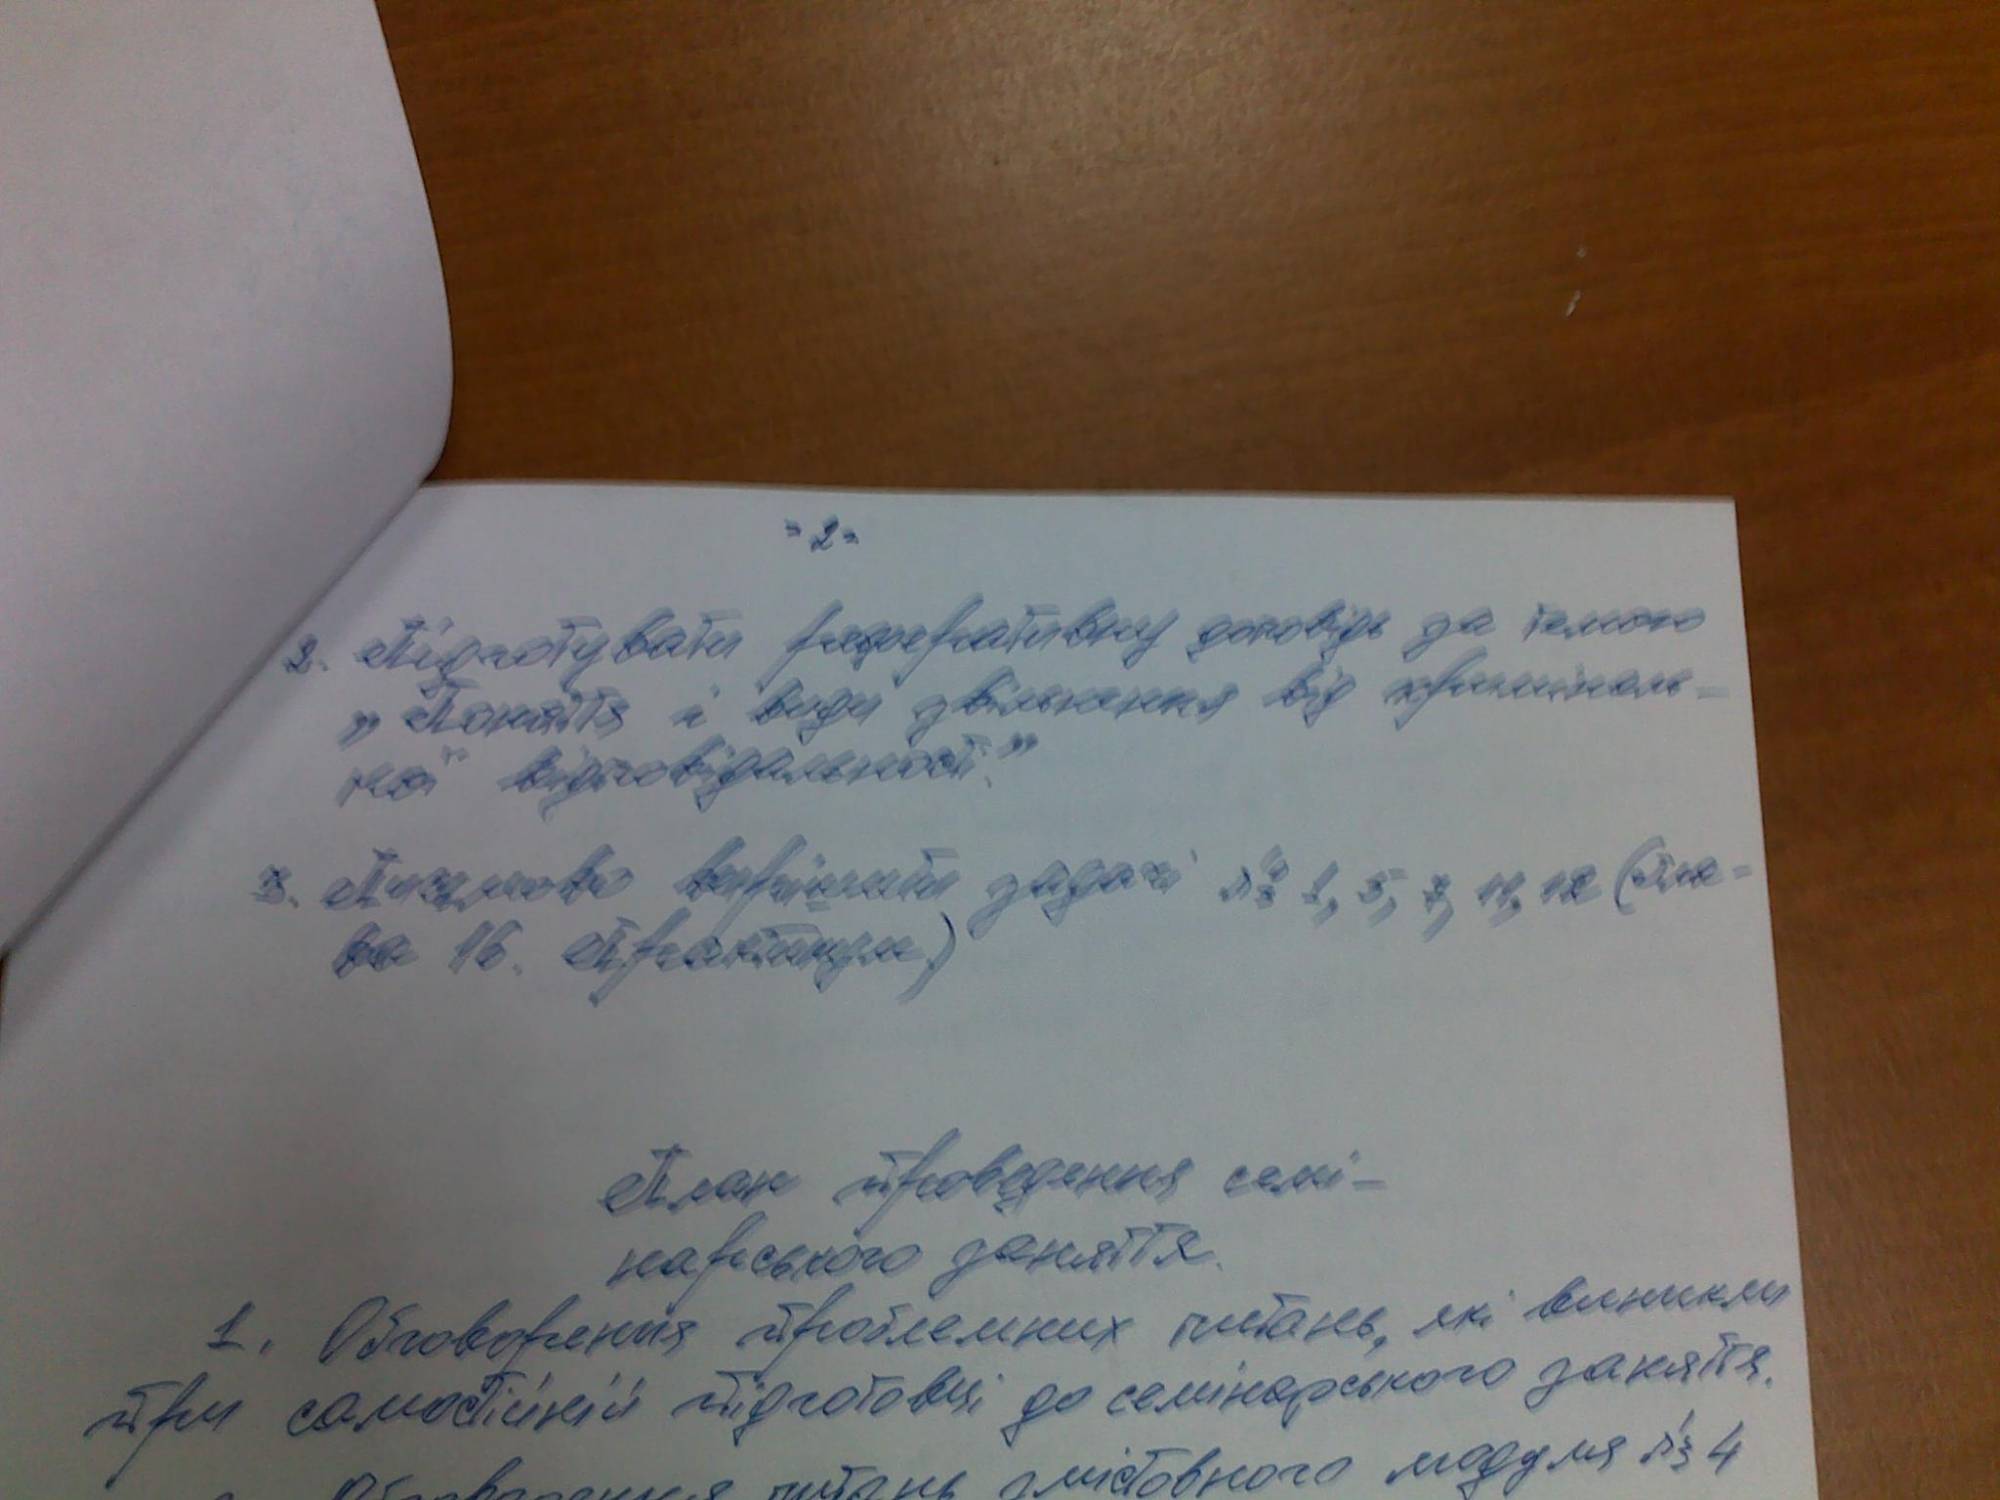 - 2 -
2. Підготувати реферативну доповідь за темою
„Поняття і види звільнення від криміналь-
ної відповідальності."
3. Письмово вирішити задачі № 1, 5, 7, 11, 12 (гла-
ва 16. Практикум)
План проведення семі-
нарського заняття.
1. Обговорення проблемних питань, які виникли
при самостійній підготовці до семінарського заняття.
2. Обговорення питань змістовного модуля № 4